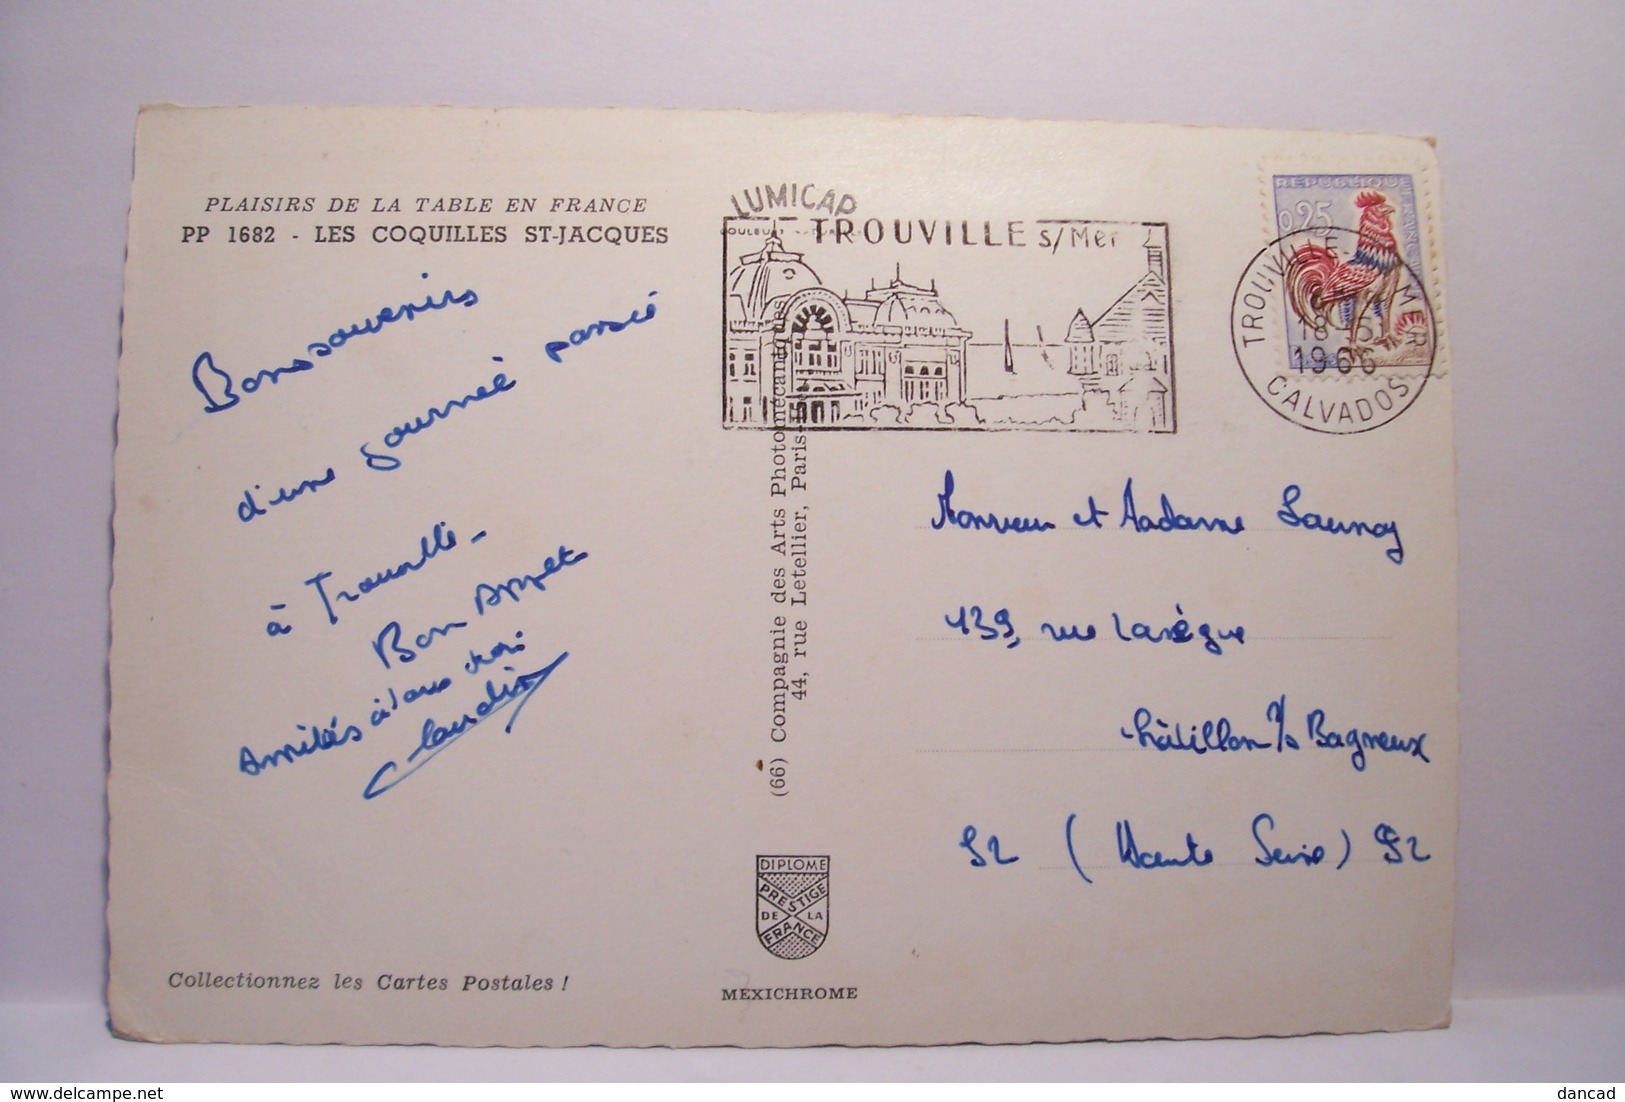 PLAISIRS DE LA TABLE EN FRANCE
PP 1682 - LES COQUILLES ST-JACQUES
Bons souvenirs
d'une journée passée
à Trouville -
Bon Appétit
Amitiés à vous trois
Claudie
Collectionnez les Cartes Postales !
LUMICAP
COULEURS NATURELLES
TROUVILLE S/Mer
(66) Compagnie des Arts Photomécaniques
44, rue Letellier, Paris
DIPLOME
PRESTIGE
DE LA
FRANCE
MEXICHROME
REPUBLIQUE FRANÇAISE
0,25
TROUVILLE-S-MER
18-5
1966
CALVADOS
Monsieur et Madame Launay
139, rue Lasègue
Châtillon s/s Bagneux
92 (Haute Seine) 92
dancad